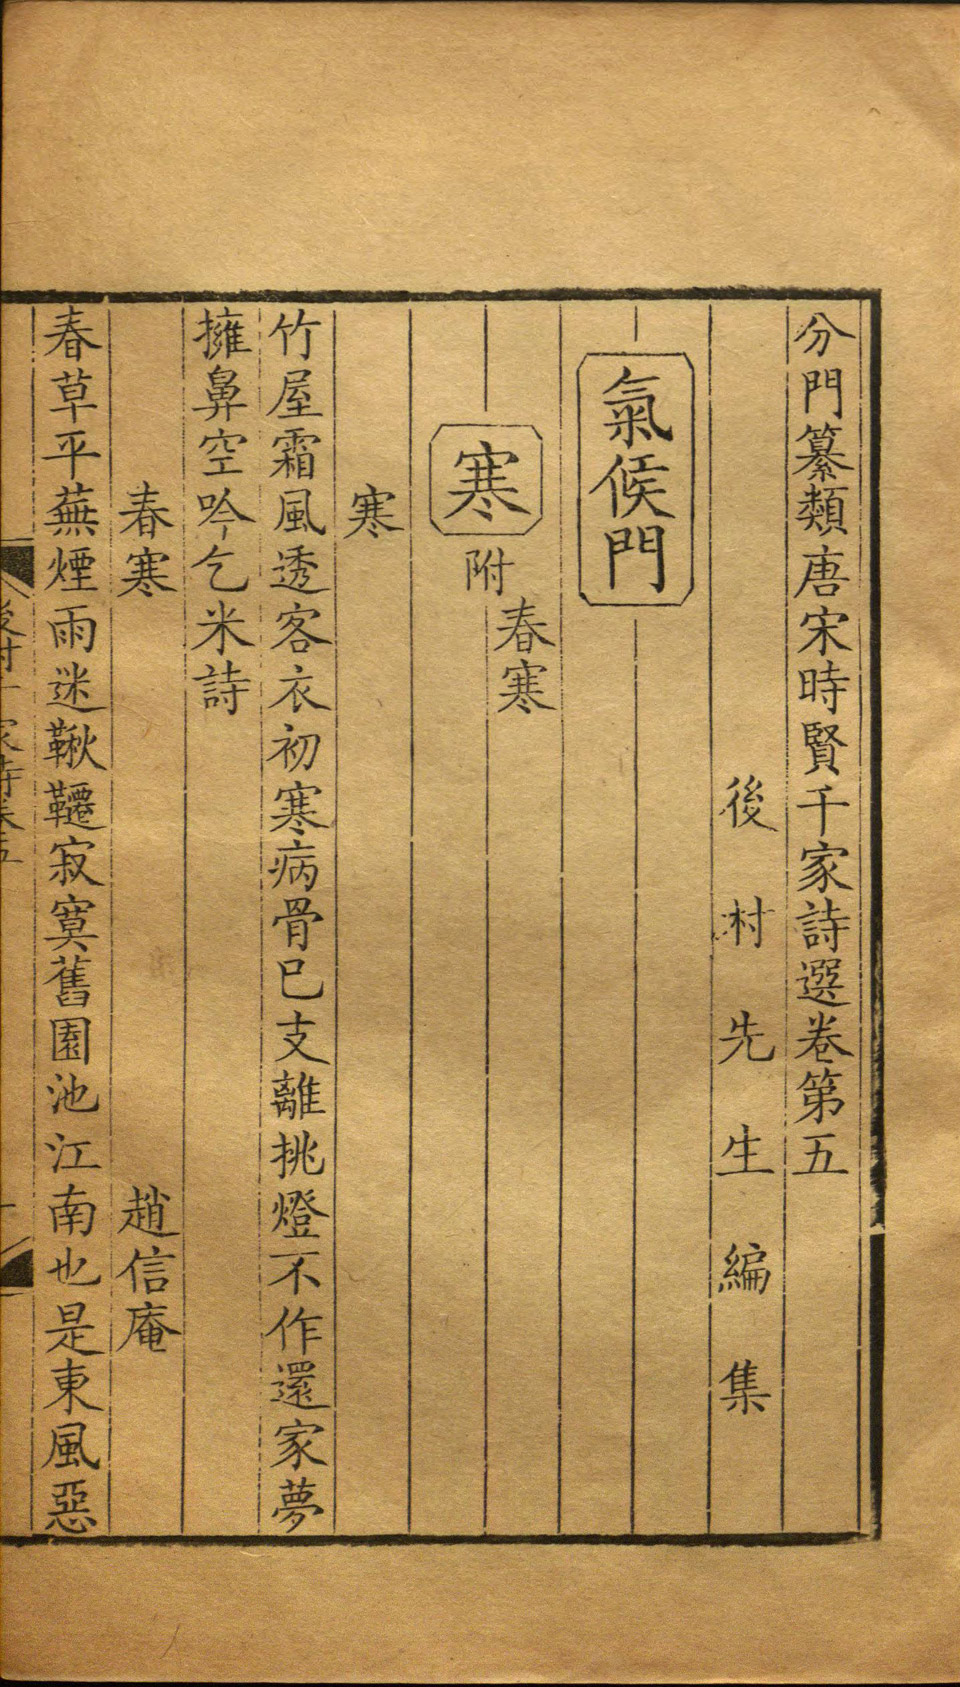 分門纂類唐宋時賢千家詩選卷第五
後村先生編集
氣候門
寒 附 春寒
寒
竹屋霜風透客衣初寒病骨已支離挑燈不作還家夢
擁鼻空吟乞米詩
春寒 趙信庵
春草平蕪煙雨迷鞦韆寂寞舊園池江南也是東風惡